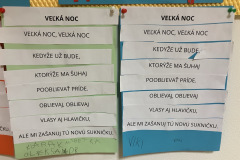 VEĽKÁ NOC
VEĽKÁ NOC, VEĽKÁ NOC
KEDYŽE UŽ BUDE,
KTORÝŽE MA ŠUHAJ
POOBLIEVAŤ PRÍDE.
OBLIEVAJ, OBLIEVAJ
VLASY AJ HLAVIČKU,
ALE MI ZAŠANUJ TÚ NOVÚ SUKNIČKU.
VEĽKÁ NOC
VEĽKÁ NOC, VEĽKÁ NOC,
KEDYŽE UŽ BUDE,
KTORÝŽE MA ŠUHAJ
POOBLIEVAŤ PRÍDE.
OBLIEVAJ, OBLIEVAJ
VLASY AJ HLAVIČKU,
ALE MI ZAŠANUJ TÚ NOVÚ SUKNIČKU.